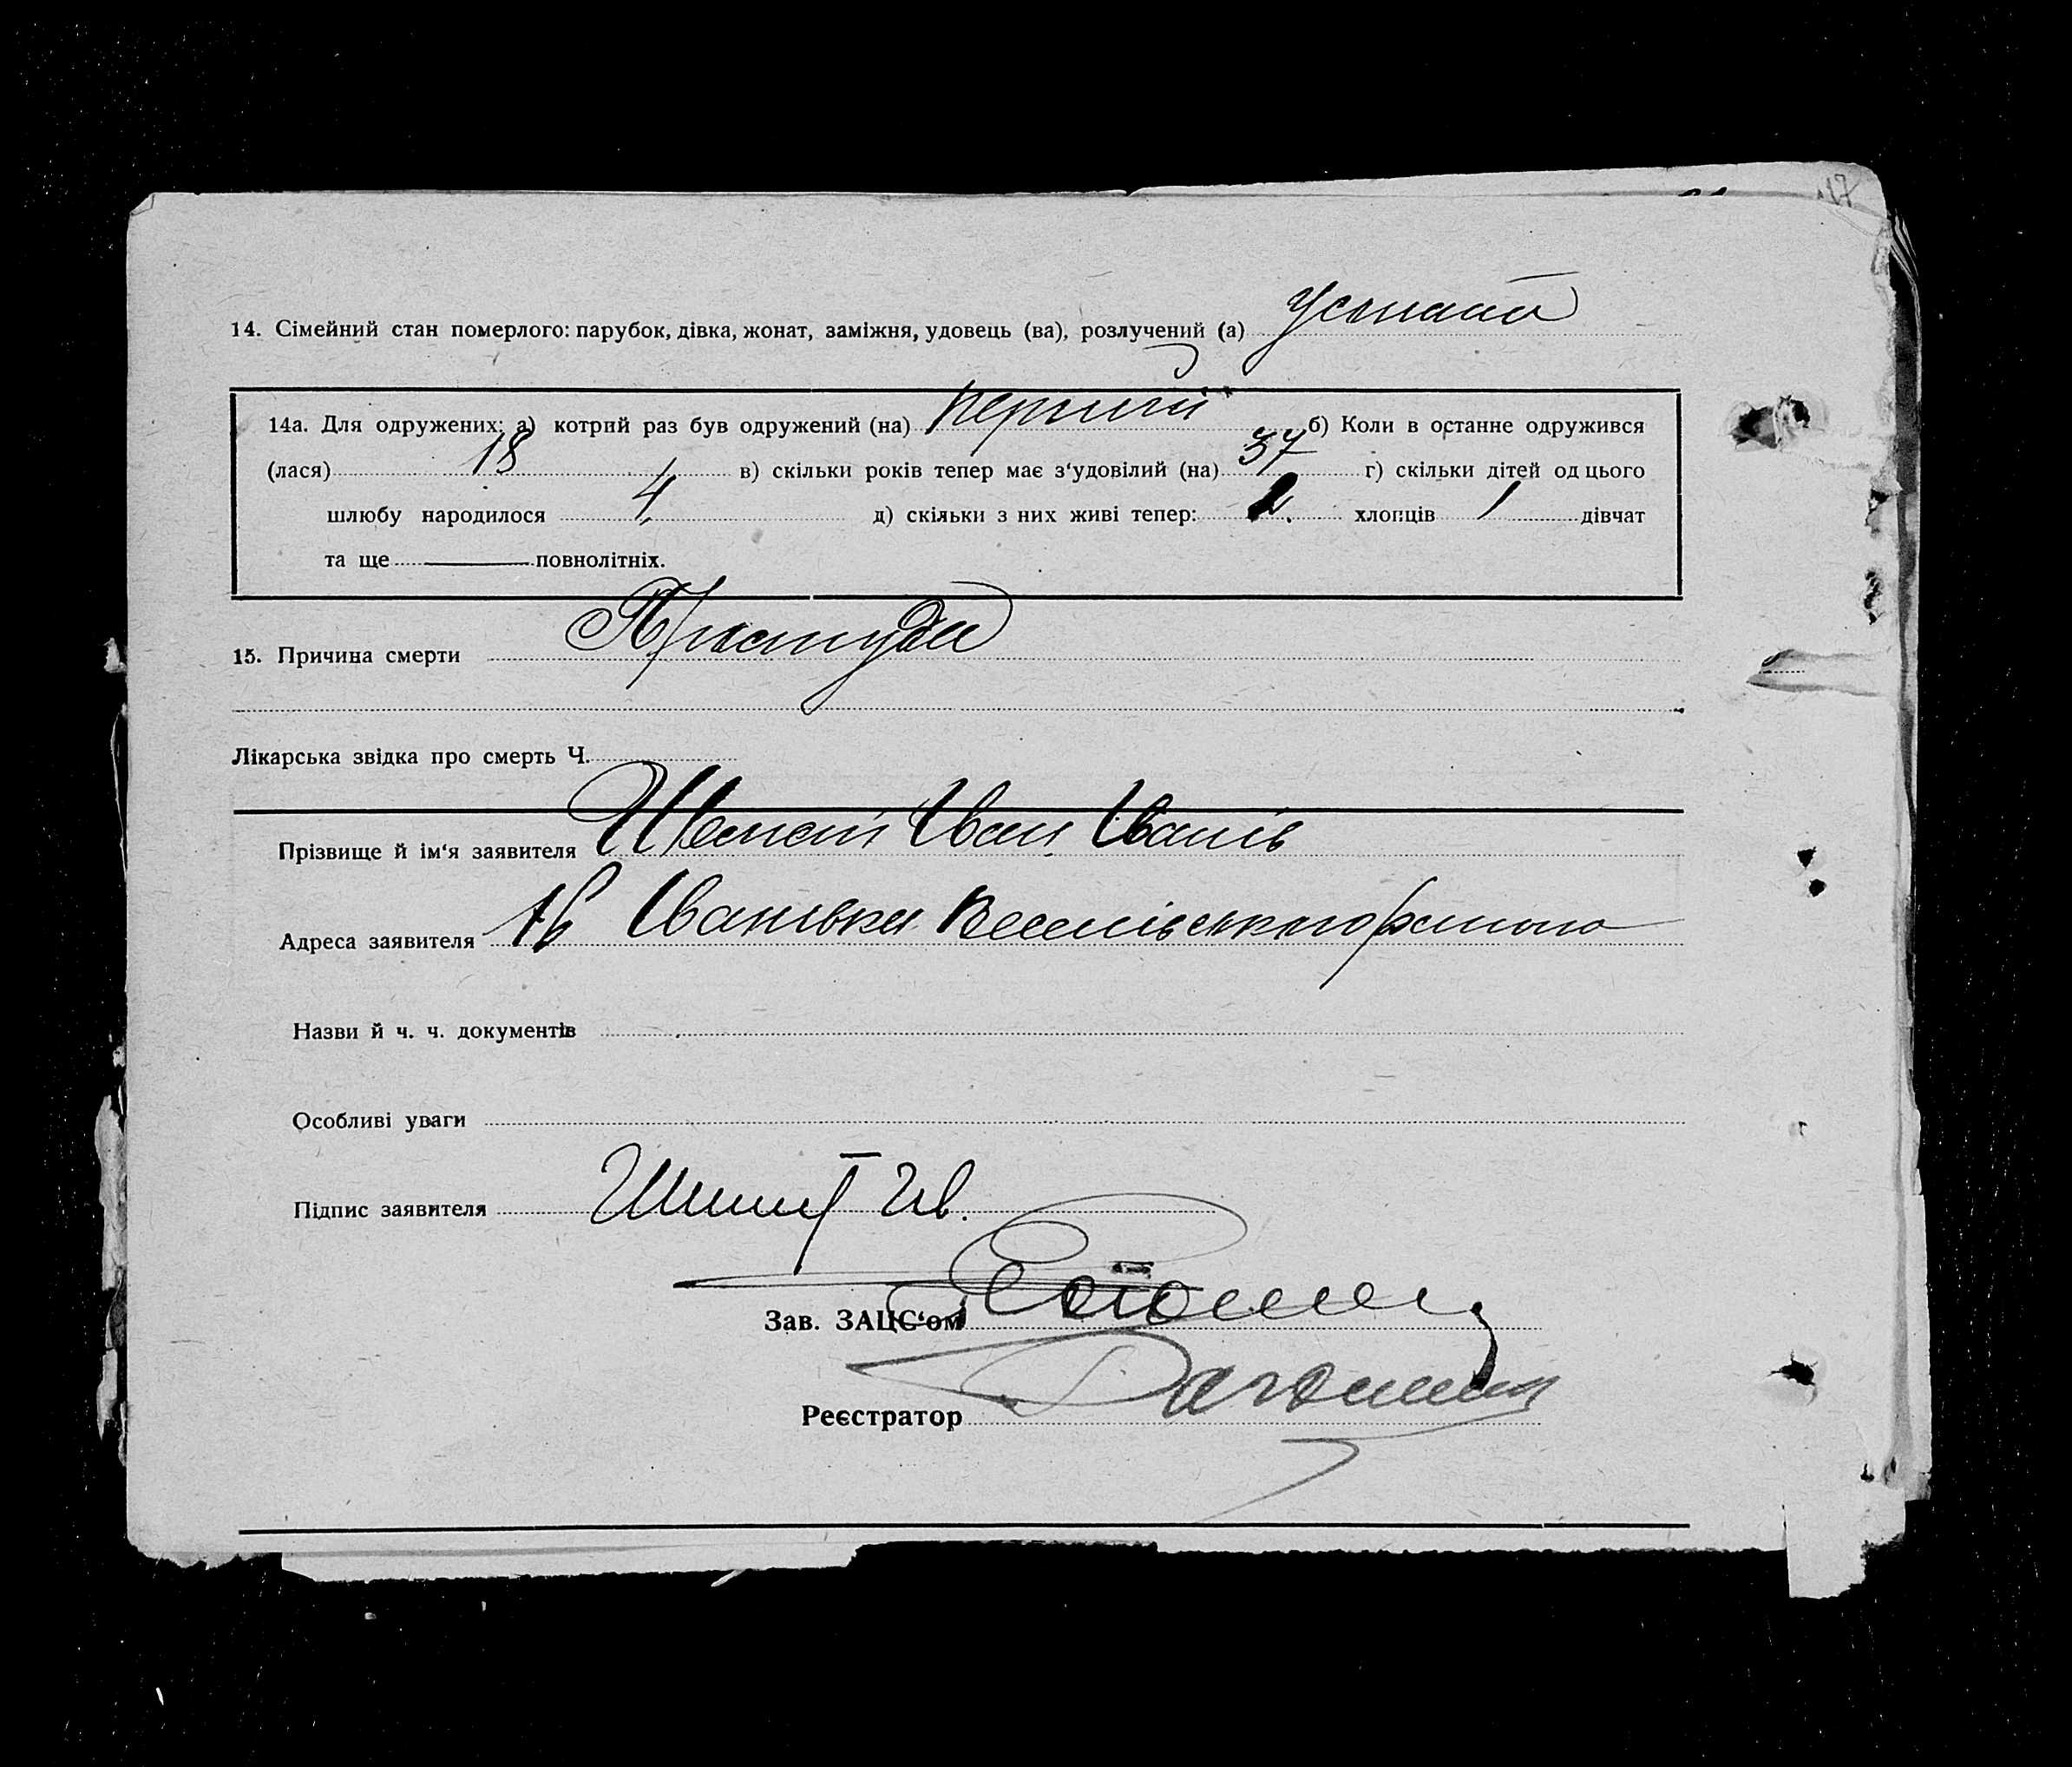 117
14. Сімейний стан померлого: парубок, дівка, жонат, заміжня, удовець (ва), розлучений (а)
14а. Для одружених: а) котрий раз був одружений (на) перший б) Коли в останне одружився
(лася) 18 в) скільки років тепер має з‘удовілий (на) 37 г) скільки дітей од цього
шлюбу народилося 4 д) скільки з них живі тепер: 2 хлопців 1 дівчат
та ще — повнолітніх.
15. Причина смерти Простуда
Лікарська звідка про смерть Ч.
Прізвище й ім‘я заявителя Іван Іванів
Адреса заявителя Іванівка Веселівського району
Назви й ч. ч. документів
Особливі уваги
Підпис заявителя Ів.
Зав. ЗАЦС‘ом
Реєстратор